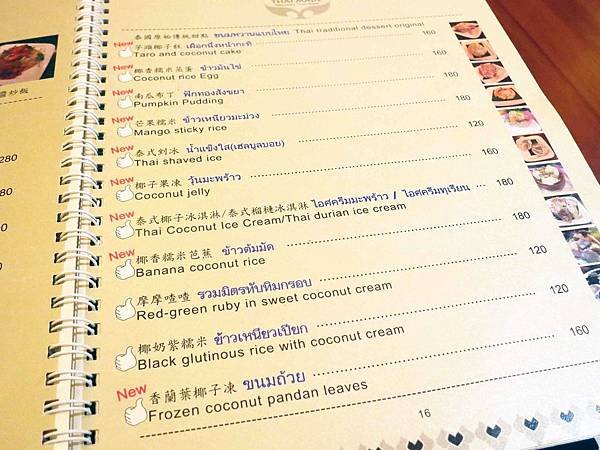 THAI MADE
泰國原始傳統甜點 ขนมหวานแบบไทย Thai traditional dessert original
New 芋頭椰子糕 เผือกนึ่งหน้ากะทิ 160
Taro and coconut cake
New 椰香糯米蒸蛋 ข้าวมันไข่ 160
Coconut rice Egg
New 南瓜布丁 ฟักทองสังขยา 180
Pumpkin Pudding
New 芒果糯米 ข้าวเหนียวมะม่วง 180
Mango sticky rice
New 泰式刨冰 น้ำแข็งใส(เฮลบูลบอย) 120
Thai shaved ice
New 椰子果凍 วุ้นมะพร้าว 160
Coconut jelly
New 泰式椰子冰淇淋/泰式榴槤冰淇淋 ไอศครีมมะพร้าว / ไอศครีมทุเรียน 180
Thai Coconut Ice Cream/Thai durian ice cream
New 椰香糯米芭蕉 ข้าวต้มมัด 180
Banana coconut rice
摩摩喳喳 รวมมิตรทับทิมกรอบ 120
Red-green ruby in sweet coconut cream
椰奶紫糯米 ข้าวเหนียวเปียก 120
Black glutinous rice with coconut cream
New 香蘭葉椰子凍 ขนมถ้วย 160
Frozen coconut pandan leaves
16
醬炒飯
280